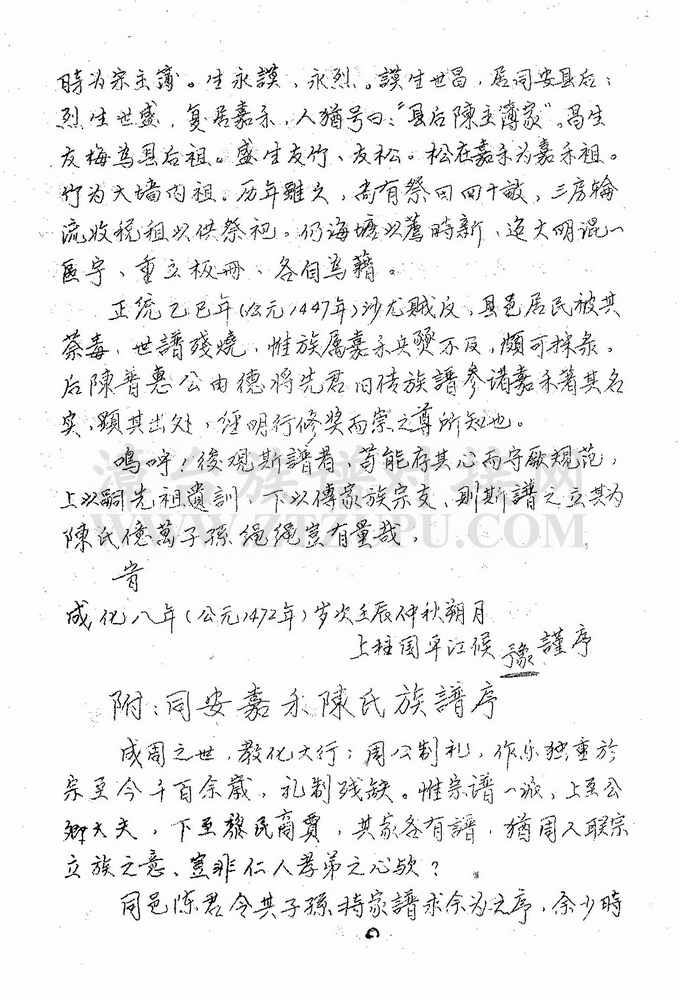 時为宗主簿。生永謨、永烈。謨生世昌,居同安县后;
烈生世盛,复居嘉禾,人猶号曰:“县后陳主簿家”。昌生
友梅為县后祖。盛生友竹、友松。松在嘉禾为嘉禾祖。
竹为大墙内祖。历年雖久,尚有祭田四十畝,三房輪
流收税租以供祭祀。仍海塘以薦時新、迨大明混一
區宇、重立板冊、各自為籍。
正统乙巳年(公元1447年)沙尤贼反,县邑居民被其
荼毒,世譜殘燒,惟族属嘉禾兵燹不及,頗可採录。
后陳普惠公由德將先君旧传族譜参诸嘉禾著其名
实,顕其出处,经明行修奖而崇之尊所知也。
嗚呼!後观斯譜者,苟能存其心而守厥規范,
上以嗣先祖遺訓,下以傳家族宗支、則斯譜之立其为
陳氏億萬子孫绳绳豈有量哉,
旹
成化八年(公元1472年)岁次壬辰仲秋朔月
上柱国平江候 豫 謹序
附:同安嘉禾陳氏族譜序
成周之世,教化大行;周公制礼,作乐独重於
宗至今千百余歲,礼制残缺。惟宗譜一派,上至公
卿大夫,下至黎民商賈,其家各有譜,猶周人联宗
立族之意、豈非仁人孝弟之心欤?
同邑陈君令其子孫持家譜求余为之序,余少時
漳台族谱对接网
WWW.ZTZUPU.COM